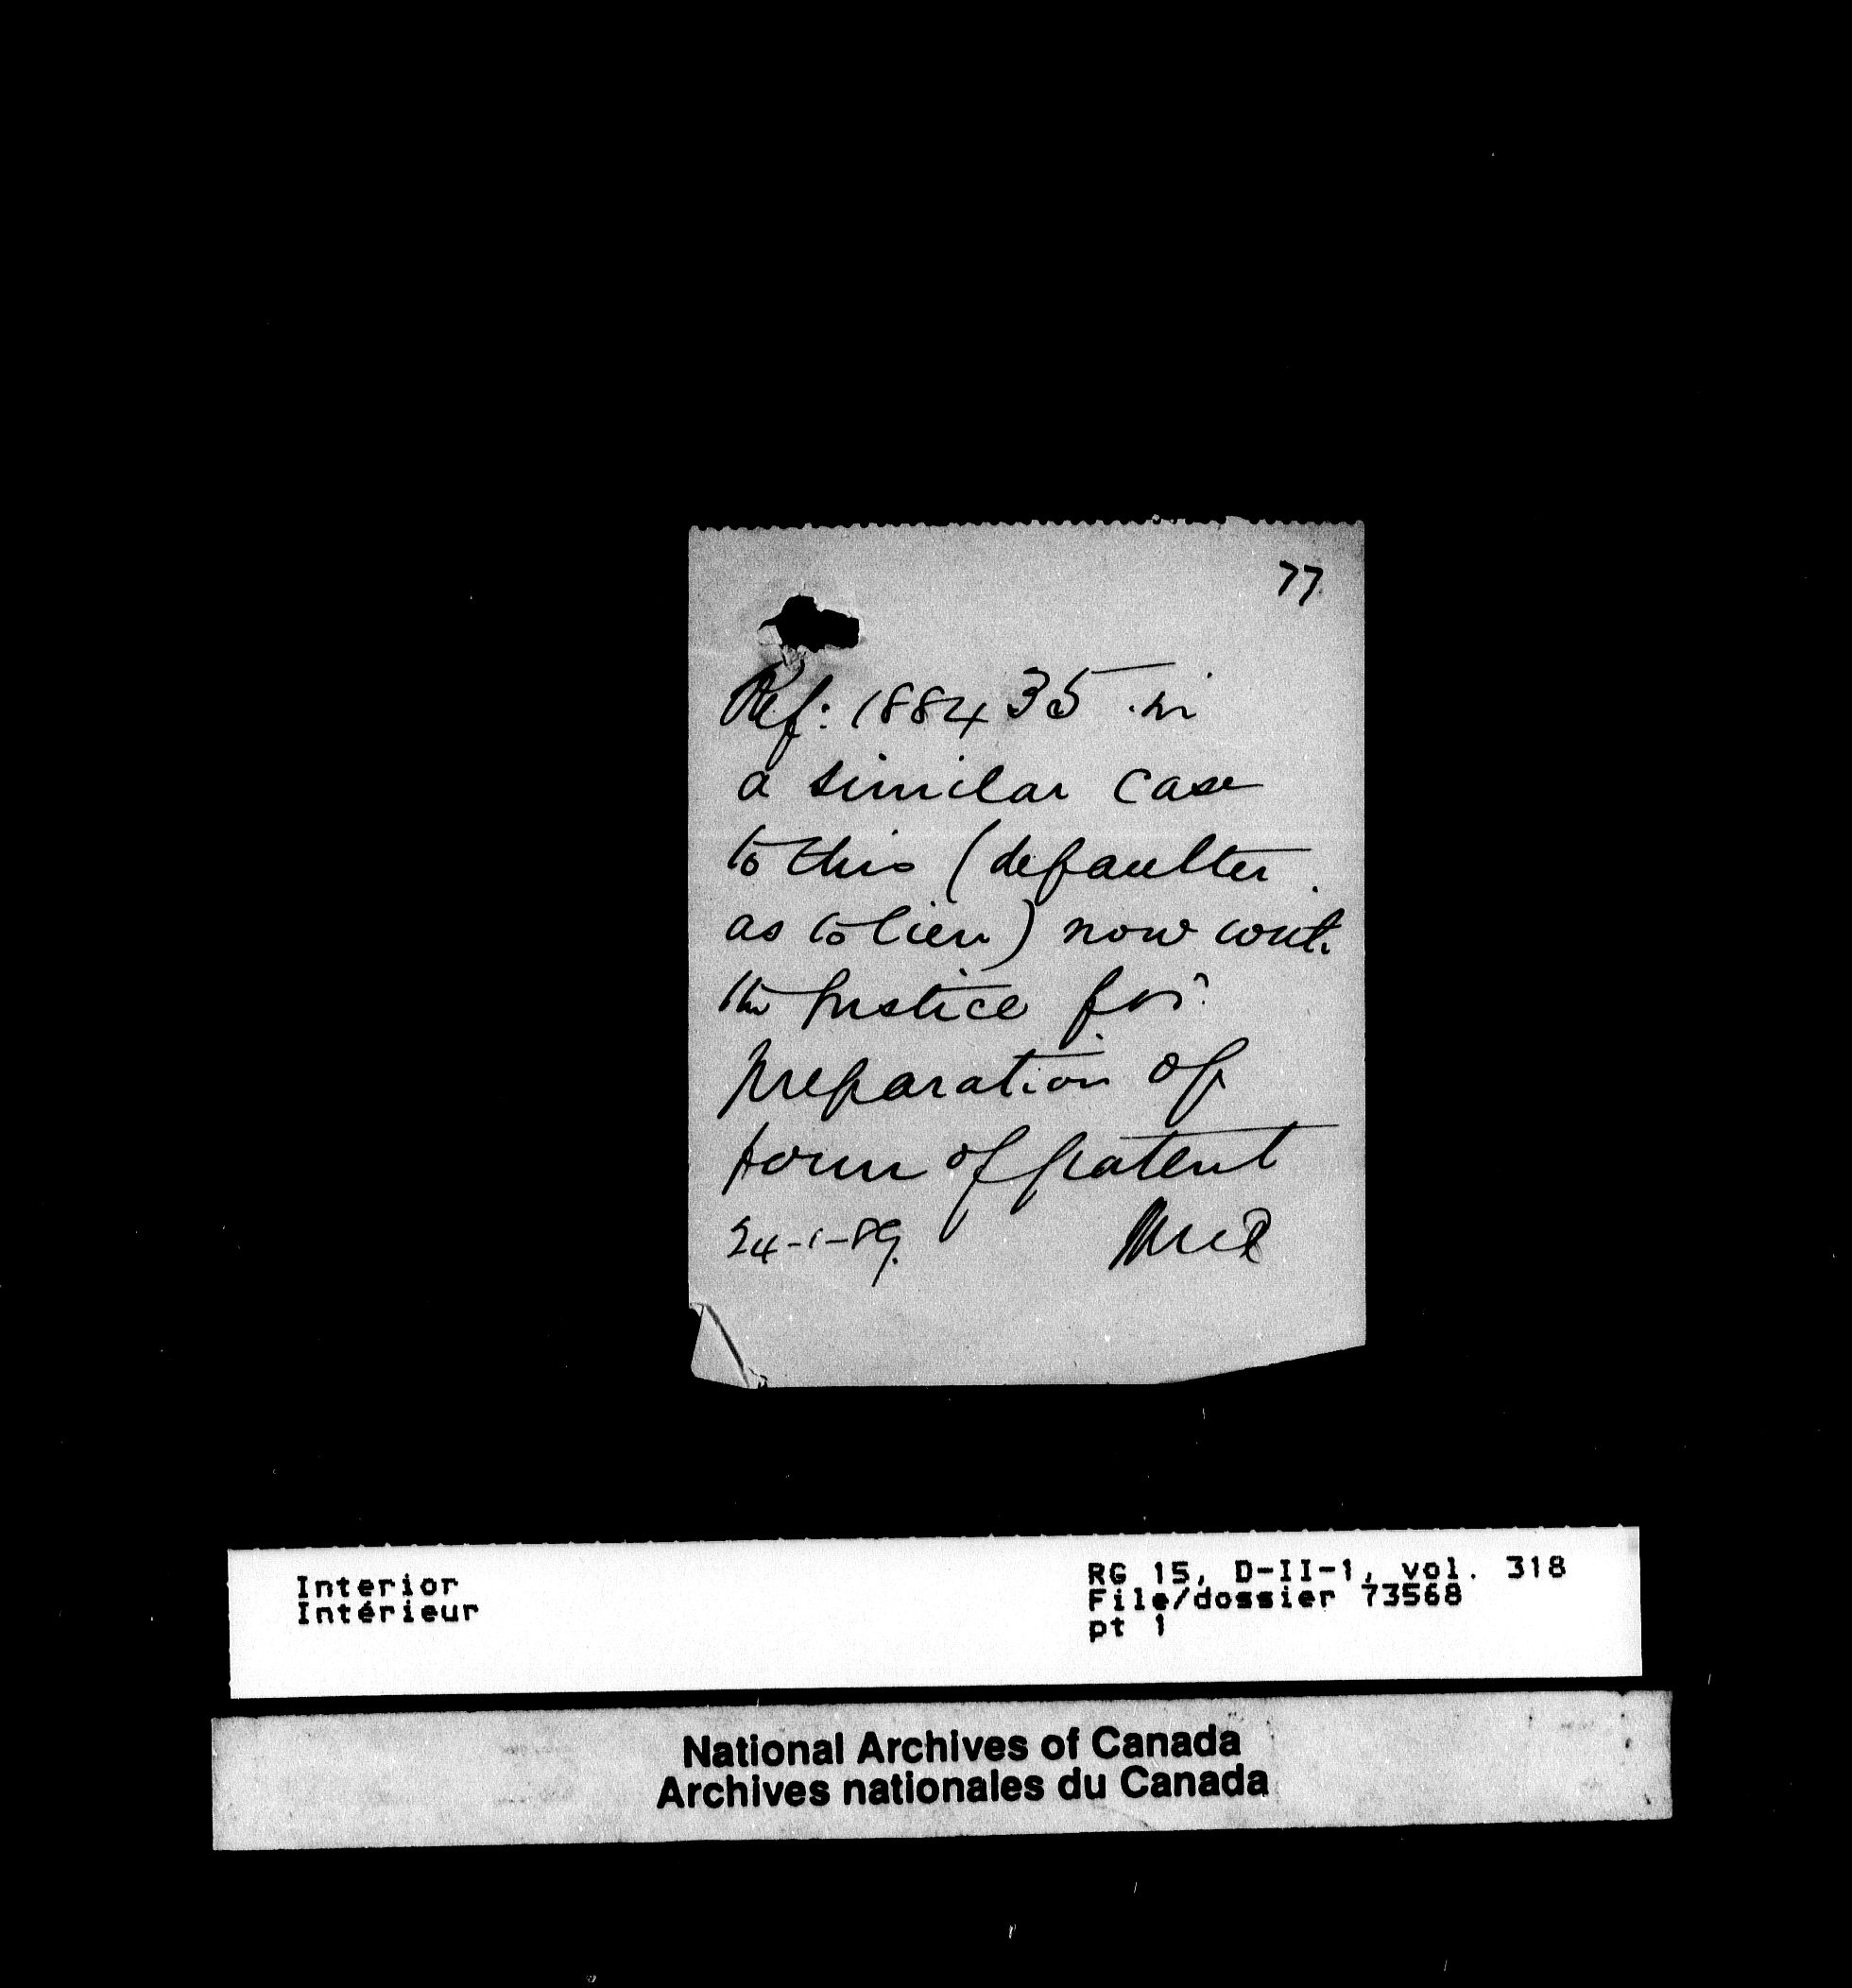 77
Ref: 188435 in
a similar case
to this (defaulter
as to lien) now with
the Justice for
preparation of
form of patent
24-1-89.
Interior
Intérieur
RG 15, D-II-1, vol. 318
File/dossier 73568
pt 1
National Archives of Canada
Archives nationales du Canada